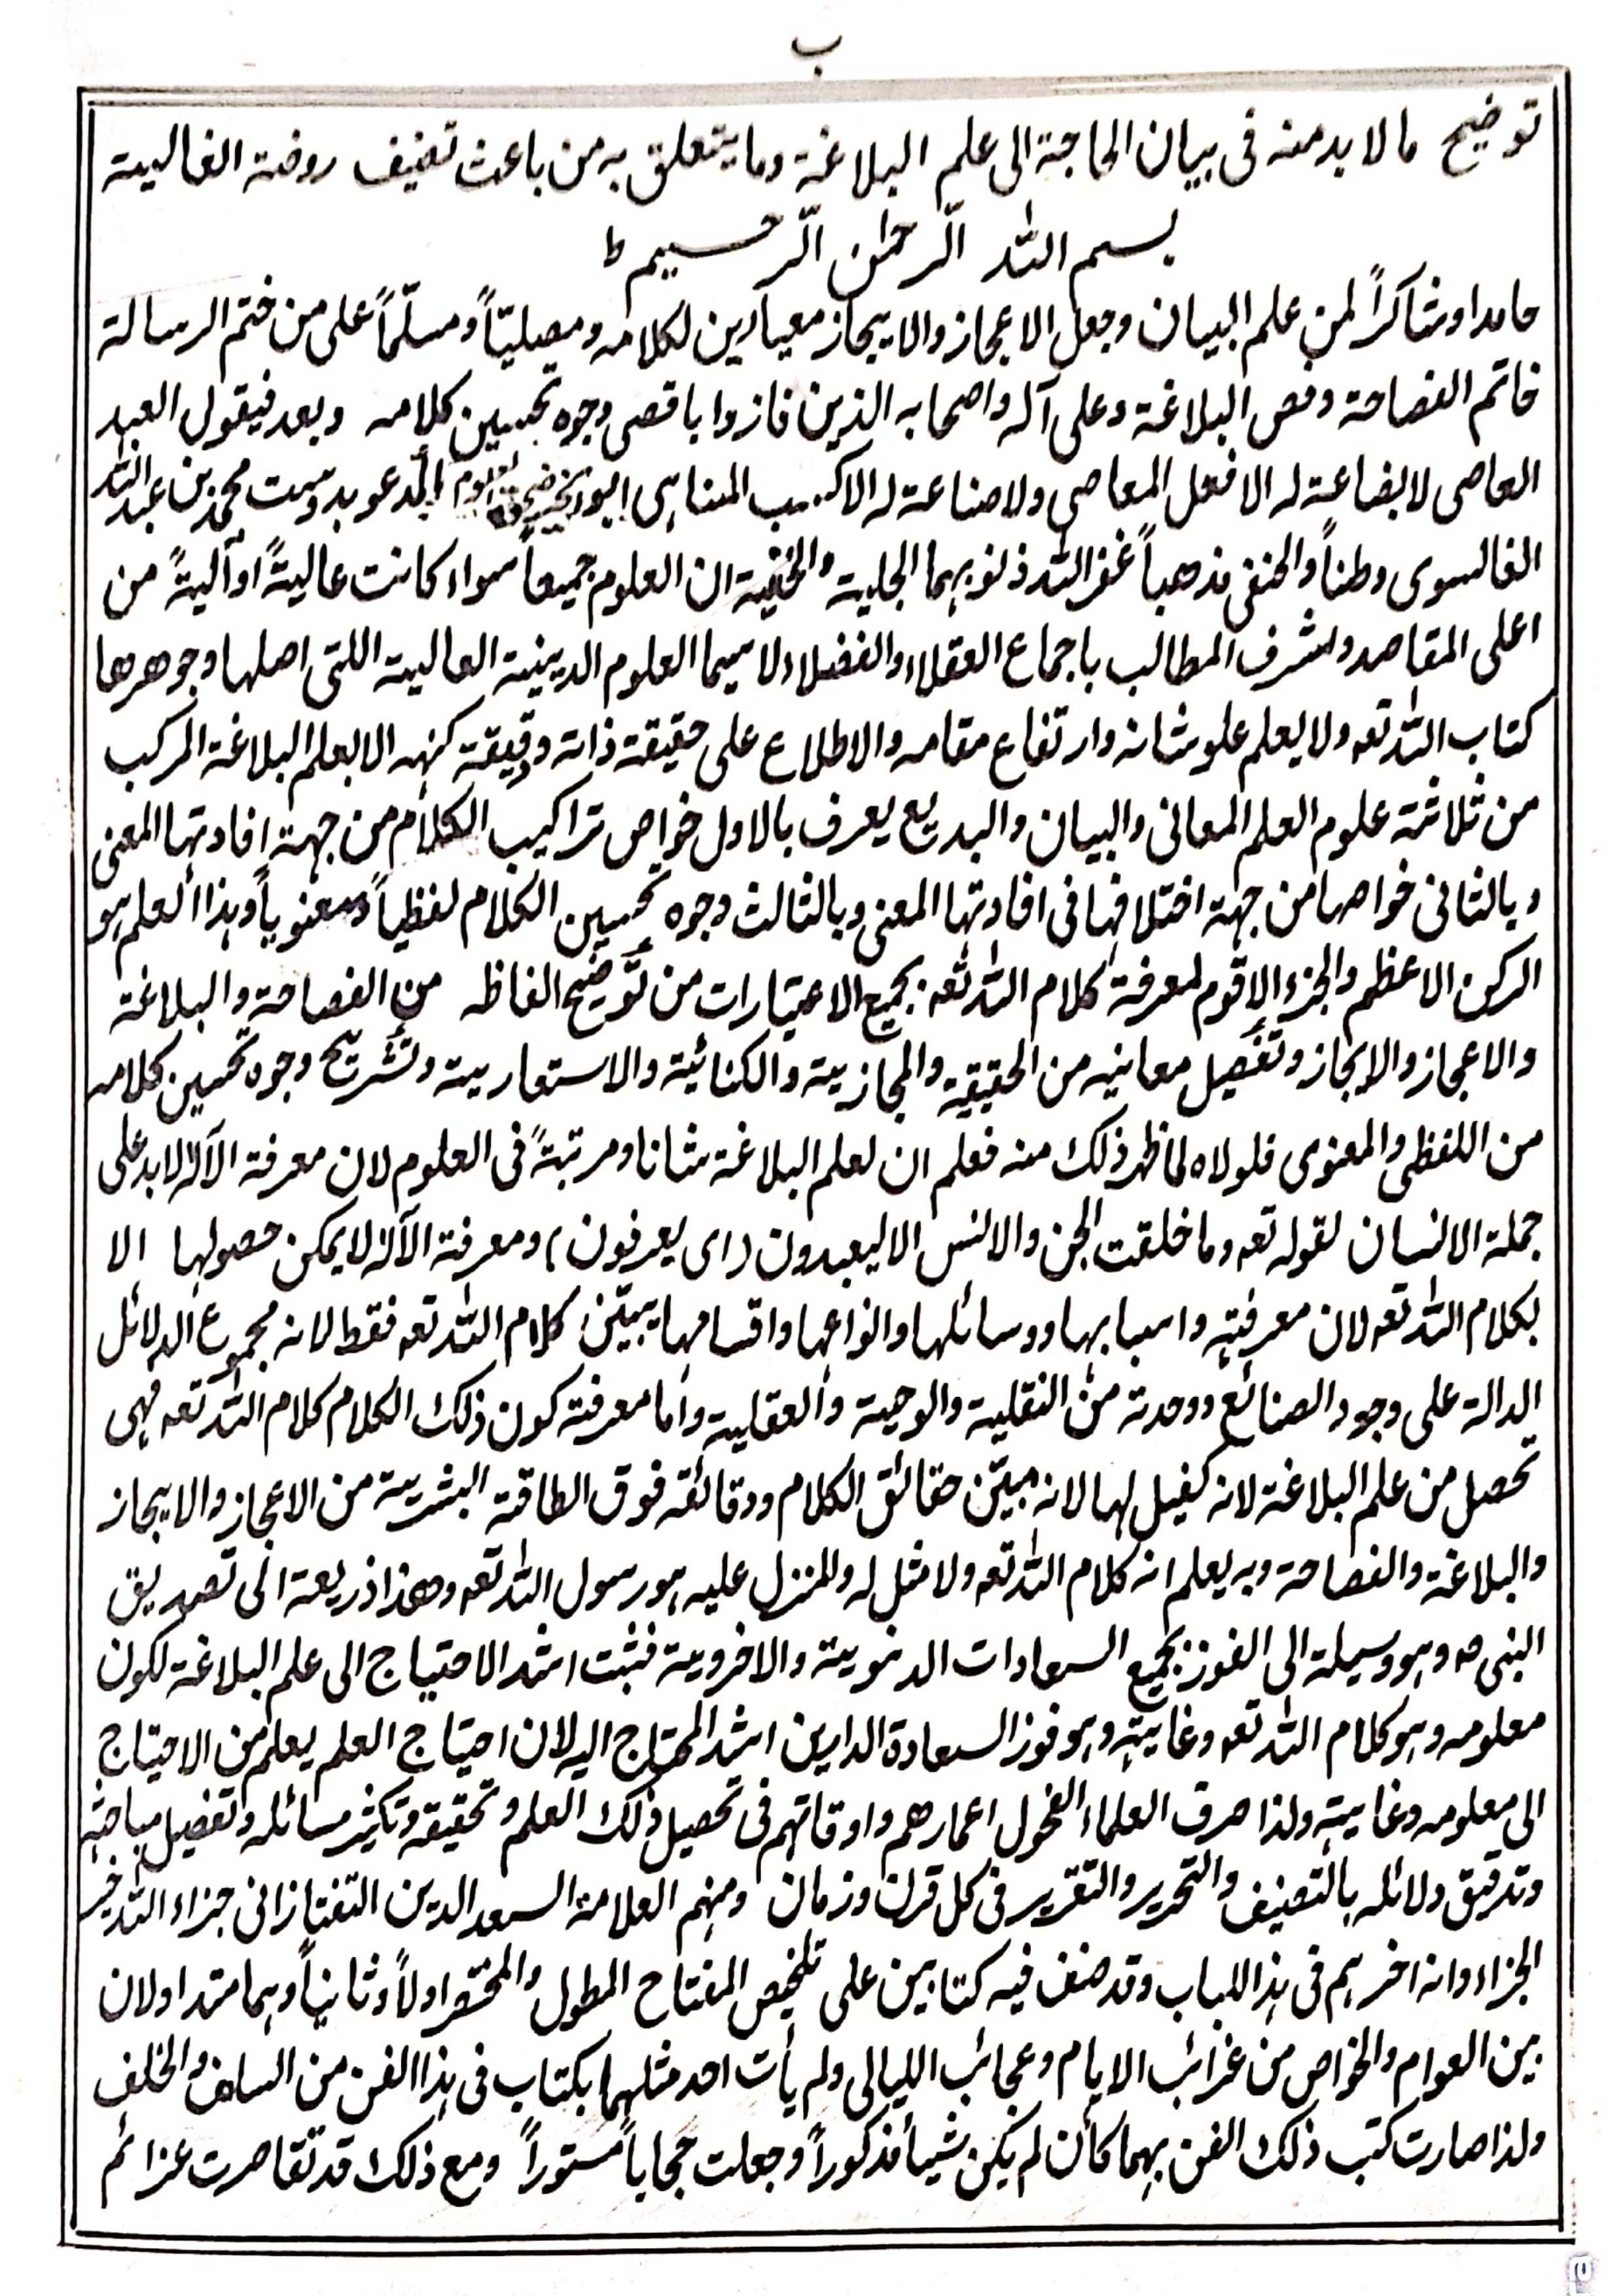 ب
توضيح ما لا بد منه فى بيان الحاجة الى علم البلاغة وما يتعلق به من باعث تصنيف روضة الغالبية
بسم الله الرّحمٰن الرّحسيم ط
حامدا وشاكراً لمن علم البيان وجعل الاعجاز والايجاز معيارين لكلامه ومصليتاً ومسلّماً على من ختم الرسالة
خاتم الفصاحة وفص البلاغة وعلى آله واصحابه الذين فازوا باقصى وجوه تحسين كلامه وبعد فيقول العبد
العاصى لا بضاعة له الا فعل المعاصى ولا صناعة له الا كسب المناهى ابو المدعو بدوست محمد بن عبدالله
الغالسوى وطناً والحنفى مذهباً غفر الله ذنوبهما الجلية والخفية ان العلوم جميعاً سواء كانت عاليةً او آليةً من
اعلى المقاصد واشرف المطالب باجماع العقلاء والفضلاء لا سيما العلوم الدينية العالية اللتى اصلها وجوهرها
كتاب الله تعه ولا يعلم علو شانه وارتفاع مقامه والاطلاع على حقيقة ذاته ودقيقة كنهه الا بعلم البلاغة المركب
من ثلاثة علوم العلم المعانى والبيان والبديع يعرف بالاول خواص تراكيب الكلام من جهة افادتها المعنى
وبالثانى خواصها من جهة اختلافها فى افادتها المعنى وبالثالث وجوه تحسين الكلام لفظياً ومعنوياً وهذا العلم هو
الركن الاعظم والجزء الاقوم لمعرفة كلام الله تعه بجميع الاعتبارات من توضيح الفاظه من الفصاحة والبلاغة
والاعجاز والايجاز وتفصيل معانيه من الحقيقية والمجازية والكنائية والاستعارية وتشريح وجوه تحسين كلامه
من اللفظى والمعنوى فلولاه لما ظهر ذلك منه فعلم ان لعلم البلاغة شانا ومرتبةً فى العلوم لان معرفة الآله لا بد على
جملة الانسان لقوله تعه وما خلقت الجن والانس الا ليعبدون (اى يعرفون) ومعرفة الآله لا يمكن حصولها الا
بكلام الله تعه لان معرفته واسبابها ووسائلها وانواعها واقسامها يبيّن كلام الله تعه فقط لانه مجموع الدلائل
الدالة على وجود الصنائع ووحدته من النقلية والوحية والعقلية واما معرفة كون ذلك الكلام كلام الله تعه فهى
تحصل من علم البلاغة لانه كفيل لها لانه مبيّن حقائق الكلام ودقائقه فوق الطاقة البشرية من الاعجاز والايجاز
والبلاغة والفصاحة وبه يعلم انه كلام الله تعه ولا مثل له والمنزل عليه هو رسول الله تعه وهذا ذريعة الى تصديق
النبى صہ وهو وسيلة الى الفوز بجميع السعادات الدنويية والاخروية فثبت اشد الاحتياج الى علم البلاغة لكون
معلومه وهو كلام الله تعه وغايته وهو فوز السعادة الدارين اشد المحتاج اليه لان احتياج العلم يعلم من الاحتياج
الى معلومه وغايته ولذا صرف العلماء الفحول اعمارهم واوقاتهم فى تحصيل ذلك العلم وتحقيقه وتكثير مسائله وتفصيل مباحثه
وتدقيق دلائله بالتصنيف والتحرير والتقرير فى كل قرن وزمان ومنهم العلامة السعد الدين التفتازانى جزاء الله خير
الجزاء وانه اخرهم فى هذا اللباب وقد صنف فيه كتابين على تلخيص المفتاح المطول والمختصر اولاً وثانياً وهما متداولان
بين العوام والخواص من غرائب الايام وعجائب الليالى ولم يأت احد مثلهما بكتاب فى هذا الفن من السلف والخلف
ولذا صارت كتب ذلك الفن بهما كأن لم يكن شيأ مذكوراً وجعلت حجاباً مستوراً ومع ذلك قد تقاصرت عزائم